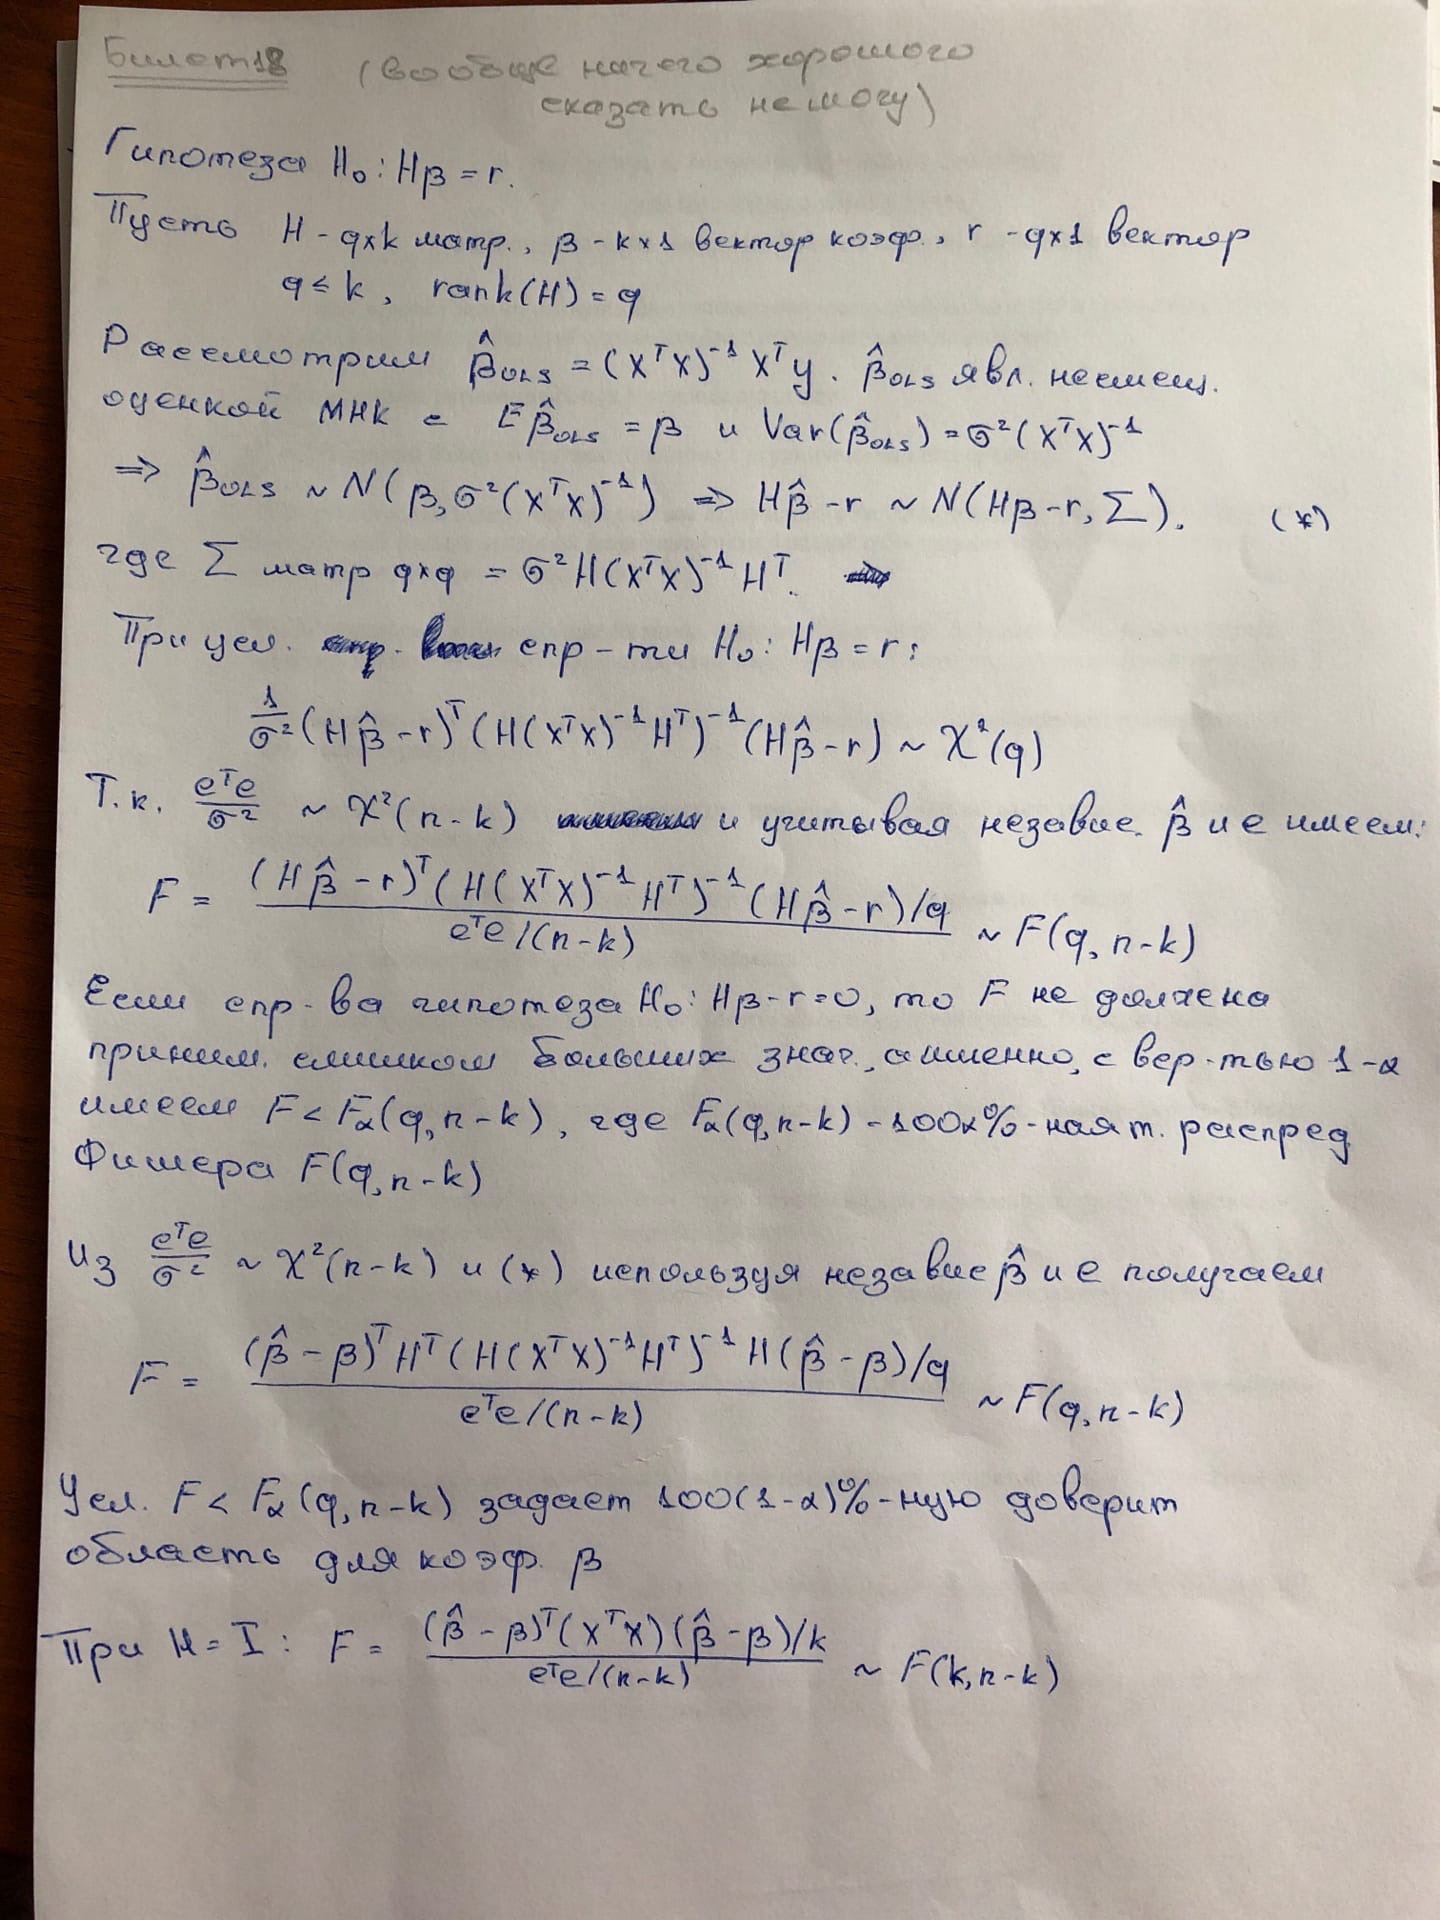 Билет 18 (вообще ничего хорошого
сказать не могу)
Гипотеза H₀: Hβ = r.
Пусть H - q×k матр., β - k×1 вектор коэф., r - q×1 вектор
q ≤ k, rank(H) = q
Рассмотрим β̂_OLS = (XᵀX)⁻¹Xᵀy. β̂_OLS явл. несмещ.
оценкой МНК с Eβ̂_OLS = β и Var(β̂_OLS) = σ²(XᵀX)⁻¹
⇒ β̂_OLS ~ N(β, σ²(XᵀX)⁻¹) ⇒ Hβ̂ - r ~ N(Hβ - r, Σ). (*)
где Σ матр q×q = σ²H(XᵀX)⁻¹Hᵀ.
При усл. спр-ти H₀: Hβ = r:
1/σ² (Hβ̂ - r)ᵀ(H(XᵀX)⁻¹Hᵀ)⁻¹(Hβ̂ - r) ~ χ²(q)
Т.к. eᵀe/σ² ~ χ²(n-k) и учитывая независ. β̂ и e имеем:
F = (Hβ̂ - r)ᵀ(H(XᵀX)⁻¹Hᵀ)⁻¹(Hβ̂ - r)/q / eᵀe/(n-k) ~ F(q, n-k)
Если спр-ва гипотеза H₀: Hβ - r = 0, то F не должена
приним. слишком больших знач., а именно, с вер-тью 1-α
имеем F < F_α(q, n-k), где F_α(q, n-k) - 100α%-ная т. распред
Фишера F(q, n-k)
Из eᵀe/σ² ~ χ²(n-k) и (*) используя независ β̂ и e получаем
F = (β̂ - β)ᵀHᵀ(H(XᵀX)⁻¹Hᵀ)⁻¹H(β̂ - β)/q / eᵀe/(n-k) ~ F(q, n-k)
Усл. F < F_α(q, n-k) задает 100(1-α)%-ную доверит
область для коэф. β
При H = I: F = (β̂ - β)ᵀ(XᵀX)(β̂ - β)/k / eᵀe/(n-k) ~ F(k, n-k)